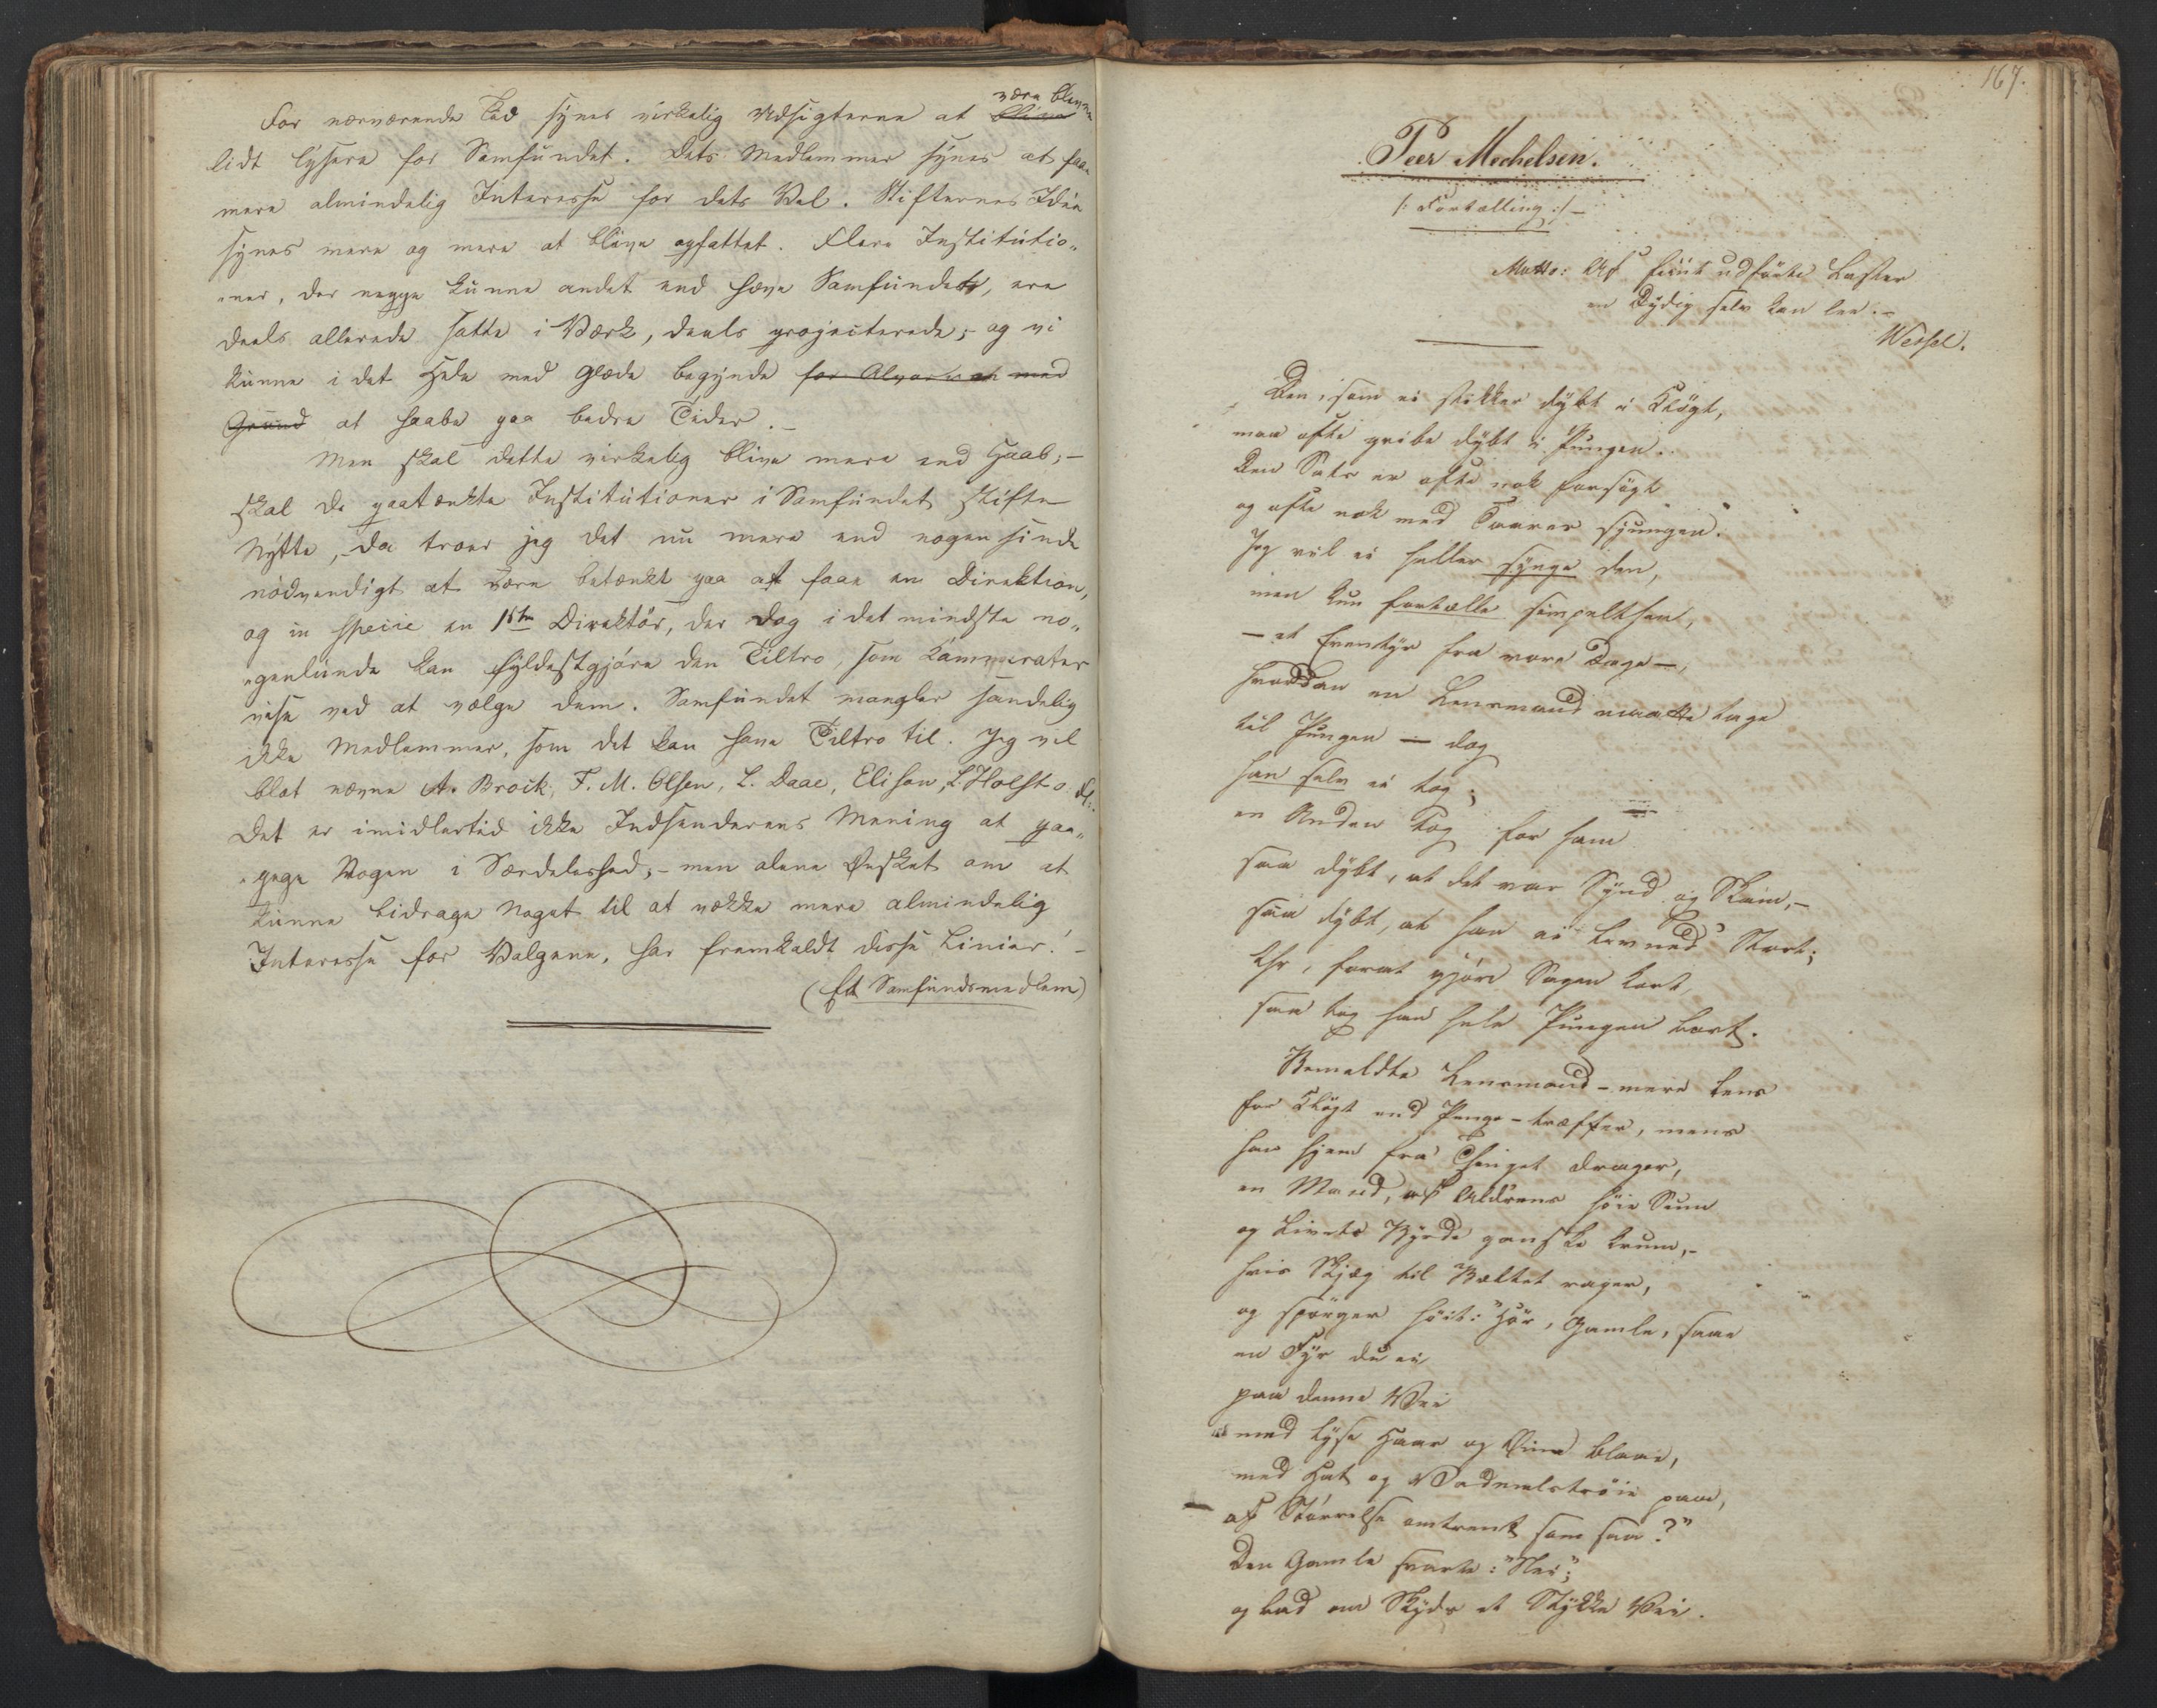 For nærværende Tid synes virkelig Udsigterne at være blevne
lidt lysere for Samfundet. Dets Medlemmer synes at faae
mere almindelig Interesse for dets Vel. Stifternes Idée
synes mere og mere at blive opfattet. Flere Institutio„
„ner, der neppe kunne andet end hæve Samfundet, ere
deels allerede satte i Værk, deels projecterede; og vi
kunne i det Hele med Glæde begynde for Alvor med
Grund at haabe paa bedre Tider.–
Men skal dette virkelig blive mere end Haab;–
skal de paatænkte Institutioner i Samfundet stifte
Nytte, da troer jeg det nu mere end nogensinde
nödvendigt at være betænkt paa at faae en Direktion,
og in specie en 1ste Direktör, der dog i det mindste no„
„genlunde kan fyldestgjöre den Tiltro, som Kammerater
vise ved at vælge dem. Samfundet mangler sandelig
ikke Medlemmer, som det kan have Tiltro til. Jeg vil
blot nævne A. Brock, F. M. Olsen, L. Daae, Elison, L. Holst o. fl:.
Det er imidlertid ikke Indsenderens Mening at paa„
„pege Nogen i Særdeleshed;– men alene Ønsket om at
kunne bidrage Noget til at vække mere almindelig
Interesse for Valgene, har fremkaldt disse Linier.–
(Et Samfundsmedlem)
167.
Peer Mechelsen.
/: Fortælling :/ –
Motto: Af fiint udförte Laster
en Dydig selv kan lee.–
Wessel.
Den, som ei stikker dybt i Klögt,
maa ofte gribe dybt i Pungen.
Den Sats er ofte nok forsögt
og ofte nok med Taarer sjungen.
Jeg vil ei heller synge den,
men kun fortælle simpelthen,
– et Eventyr fra vore Dage –,
hvordan en Lensmand maatte tage
til Pungen – dog
han selv ei tog;
en Anden tog for ham
saa dybt, at det var Synd og Skam,–
saa dybt, at han ei levned' Stort;
thi, forat gjöre Sagen kort,
saa tog han hele Pungen bort.
Bemeldte Lensmand – mere lens
for Klögt end Penge – træffer, mens
han hjem fra Thinget drager,
en Mand, af Alderens höie Sum
og Livets Byrde ganske krum,–
hvis Skjæg til Bæltet rager,
og spörger höit: "Hör, Gamle, saae
en Fyr du ei
paa denne Vei
med lyse Haar og Øine blaae,
med Hat og Vadmelströie paa,
– af Störrelse omtrent som saa?"
Den Gamle svarte: "Nei";
og bad om Skyds et Stykke Vei.